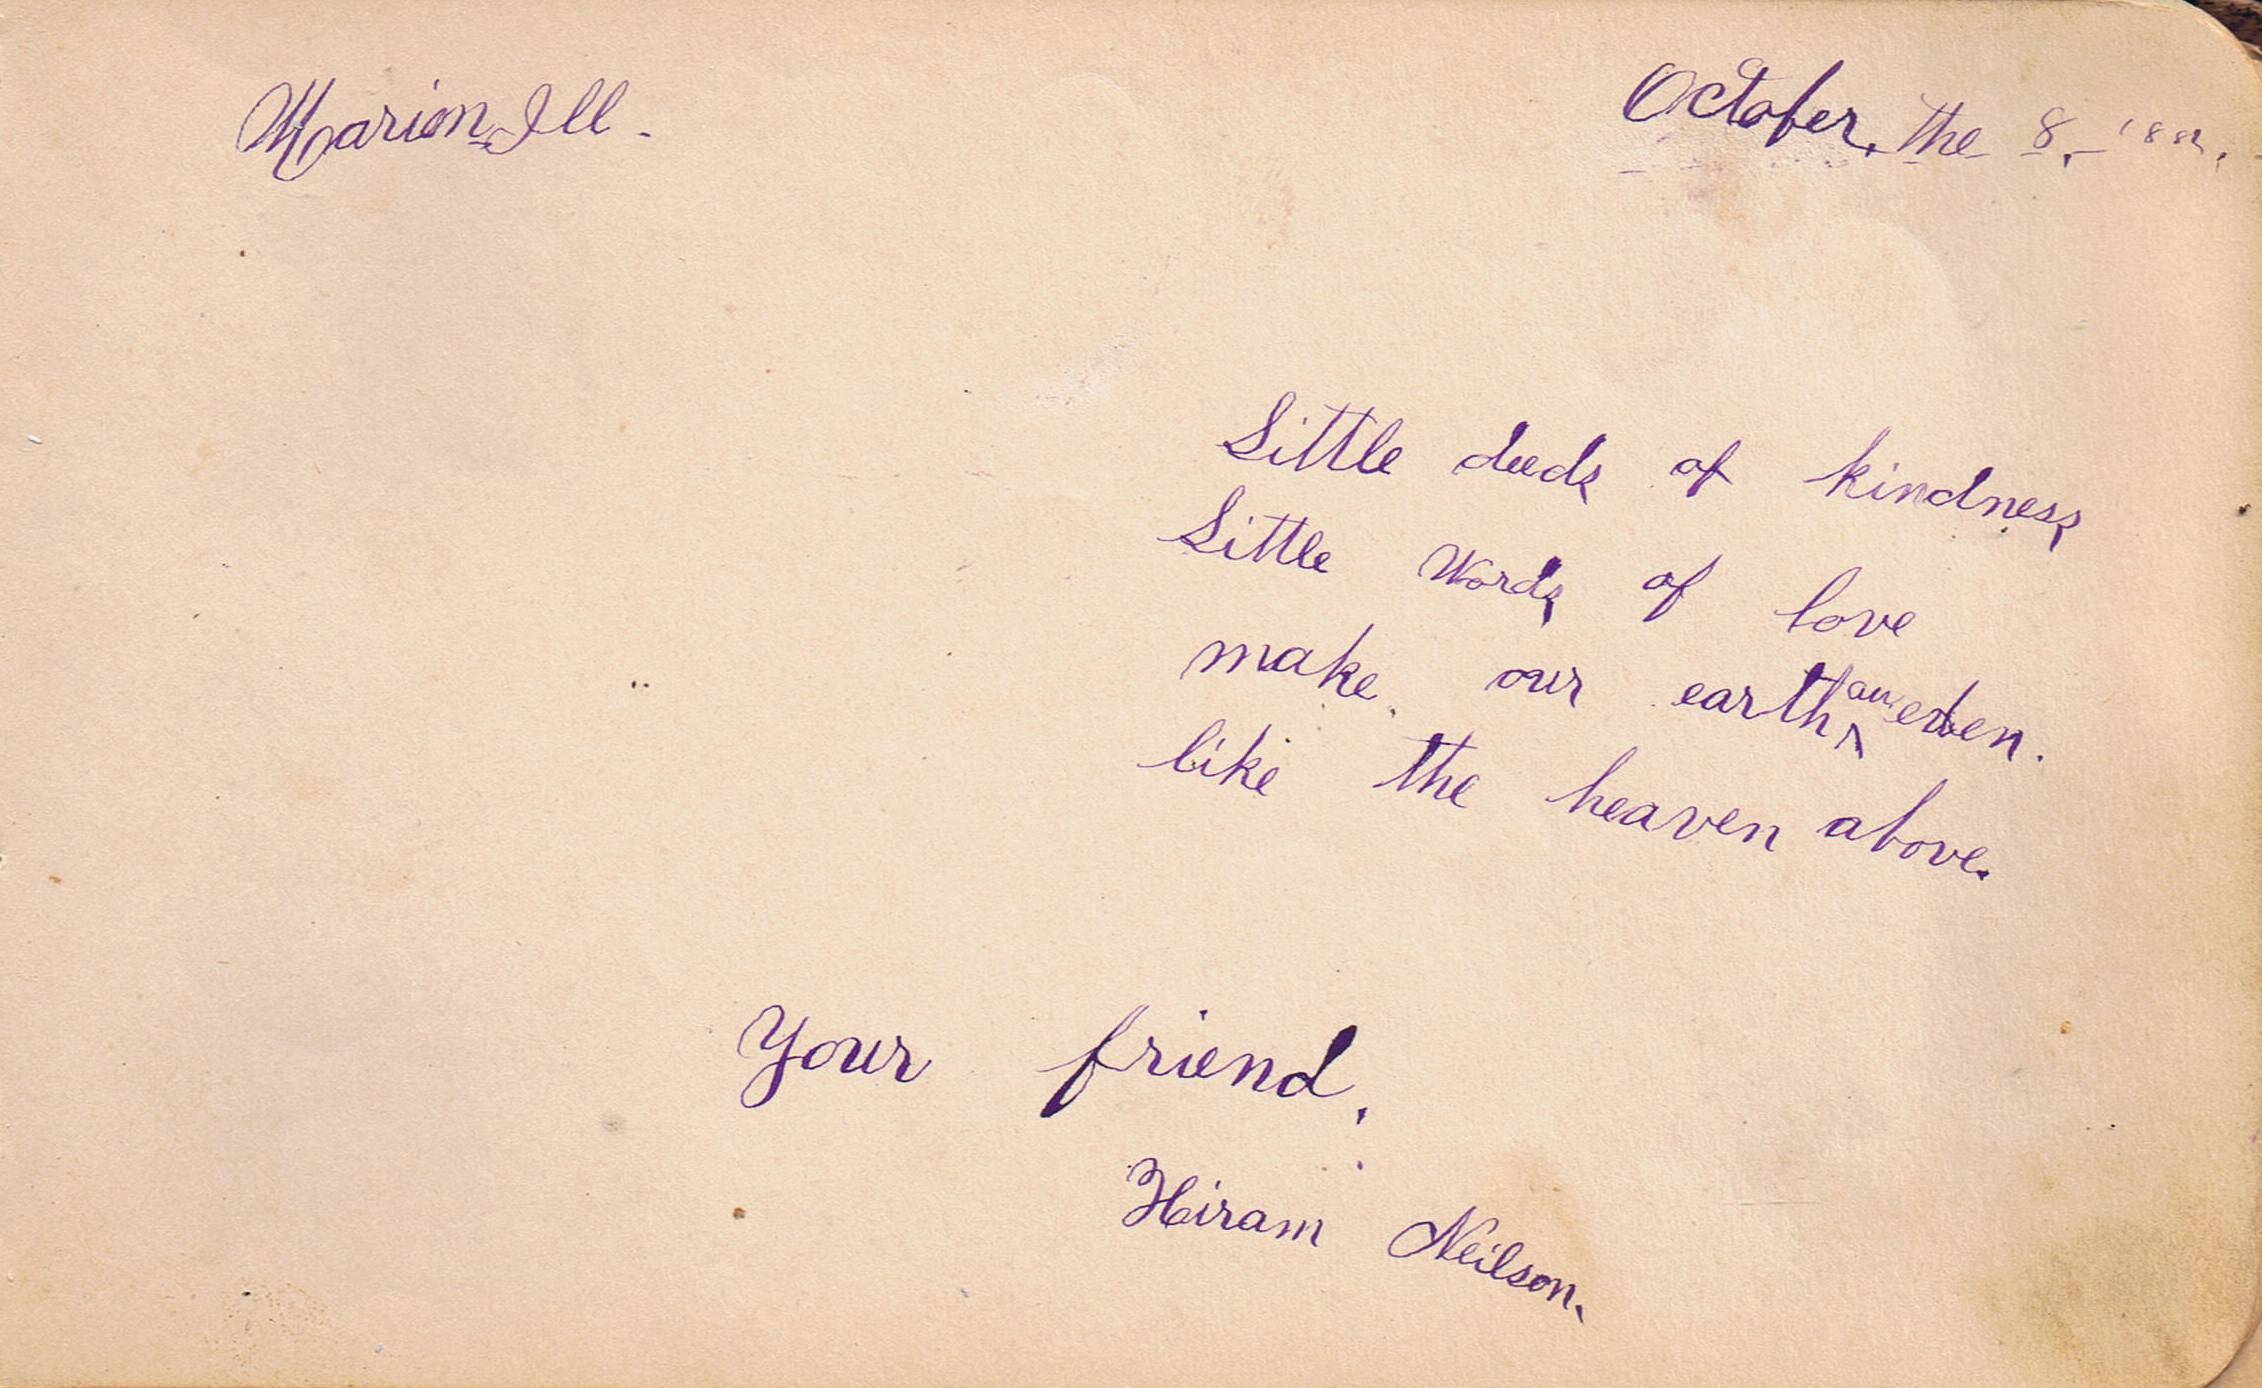 Marion, Ill.
October, the 8,
Little deeds of kindness,
Little Words, of love
make our earth, an eden.
like the heaven above.
Your friend,
Hiram Neilson.